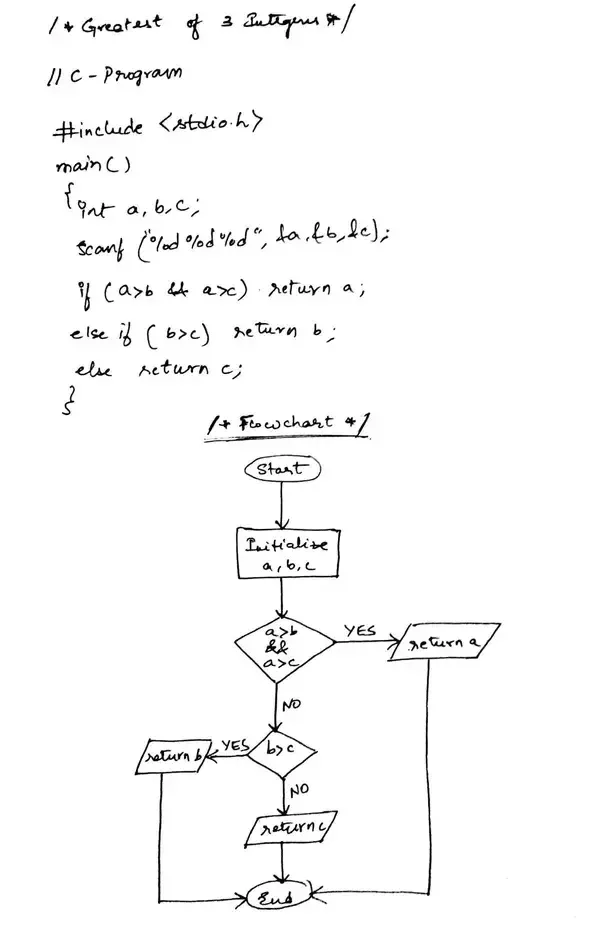 /* Greatest of 3 Integers */
// C - Program
#include <stdio.h>
main()
{int a, b, c;
scanf ("%d %d %d", &a, &b, &c);
if (a>b && a>c) return a;
else if (b>c) return b;
else return c;
}
/* Flowchart */
Start
Initialize
a, b, c
a>b
&&
a>c
YES
return a
NO
b>c
YES
return b
NO
return c
End